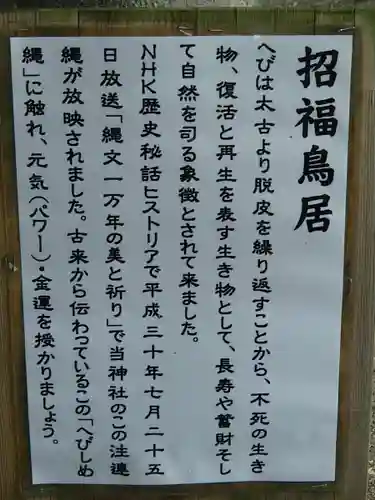 招福鳥居
へびは太古より脱皮を繰り返すことから、不死の生き
物、復活と再生を表す生き物として、長寿や蓄財そし
て自然を司る象徴とされて来ました。
NHK歴史秘話ヒストリアで平成三十年七月二十五
日放送「縄文一万年の美と祈り」で当神社のこの注連
縄が放映されました。古来から伝わっているこの「へびしめ
縄」に触れ、元気(パワー)・金運を授かりましょう。